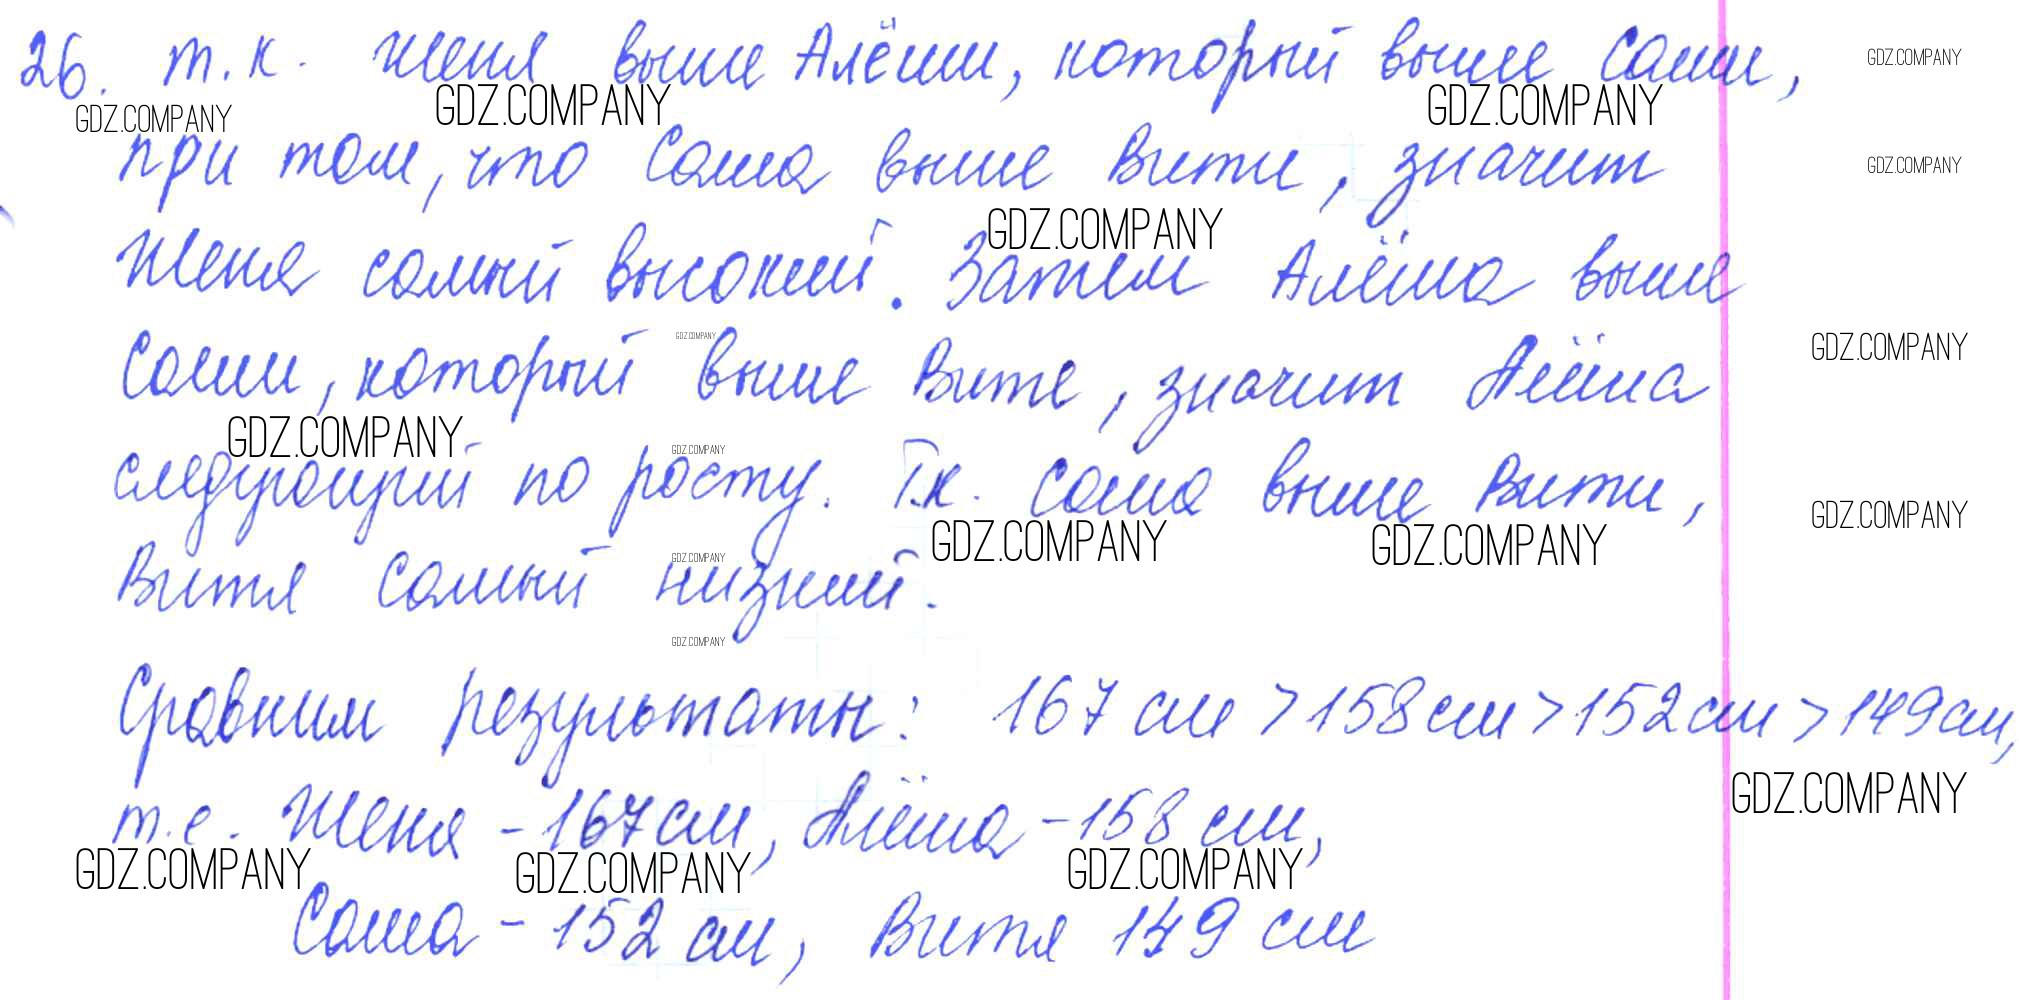 26. т.к. Женя выше Алёши, который выше Саши,
GDZ.COMPANY
GDZ.COMPANY GDZ.COMPANY GDZ.COMPANY
при том, что Саша выше Вити, значит
GDZ.COMPANY
GDZ.COMPANY
Женя самый высокий. Затем Алёша выше
GDZ.COMPANY
Саши, который выше Вите, значит Алёша
GDZ.COMPANY
GDZ.COMPANY GDZ.COMPANY
следующий по росту. Т.к. Саша выше Вити,
GDZ.COMPANY
GDZ.COMPANY GDZ.COMPANY
GDZ.COMPANY
Витя самый низкий.
GDZ.COMPANY
Сравним результаты: 167 см > 158 см > 152 см > 149 см,
GDZ.COMPANY
т.е. Женя - 167 см, Алёша - 158 см,
GDZ.COMPANY GDZ.COMPANY GDZ.COMPANY
Саша - 152 см, Витя 149 см